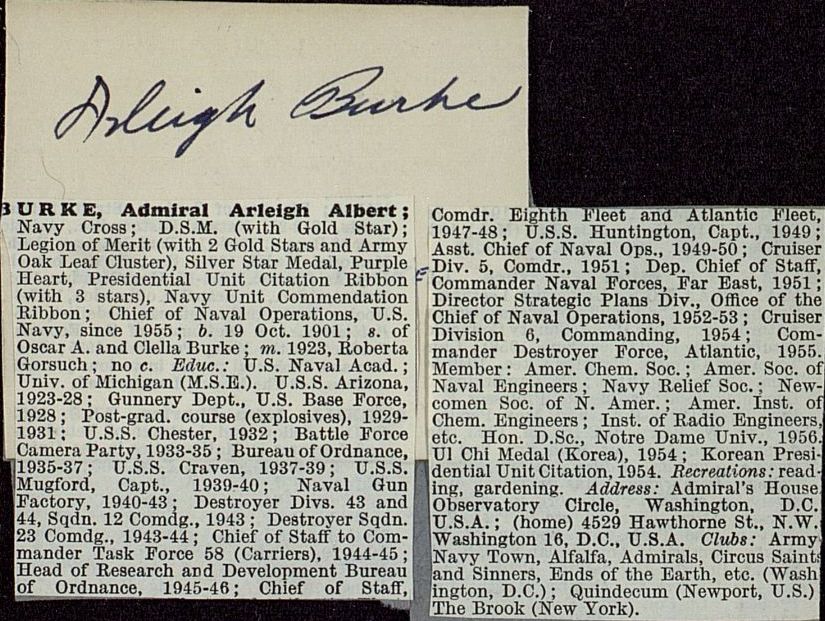 Arleigh Burke
BURKE, Admiral Arleigh Albert;
Navy Cross; D.S.M. (with Gold Star);
Legion of Merit (with 2 Gold Stars and Army
Oak Leaf Cluster), Silver Star Medal, Purple
Heart, Presidential Unit Citation Ribbon
(with 3 stars), Navy Unit Commendation
Ribbon; Chief of Naval Operations, U.S.
Navy, since 1955; b. 19 Oct. 1901; s. of
Oscar A. and Clella Burke; m. 1923, Roberta
Gorsuch; no c. Educ.: U.S. Naval Acad.;
Univ. of Michigan (M.S.E.). U.S.S. Arizona,
1923-28; Gunnery Dept., U.S. Base Force,
1928; Post-grad. course (explosives), 1929-
1931; U.S.S. Chester, 1932; Battle Force
Camera Party, 1933-35; Bureau of Ordnance,
1935-37; U.S.S. Craven, 1937-39; U.S.S.
Mugford, Capt., 1939-40; Naval Gun
Factory, 1940-43; Destroyer Divs. 43 and
44, Sqdn. 12 Comdg., 1943; Destroyer Sqdn.
23 Comdg., 1943-44; Chief of Staff to Com-
mander Task Force 58 (Carriers), 1944-45;
Head of Research and Development Bureau
of Ordnance, 1945-46; Chief of Staff,
Comdr. Eighth Fleet and Atlantic Fleet,
1947-48; U.S.S. Huntington, Capt., 1949;
Asst. Chief of Naval Ops., 1949-50; Cruiser
Div. 5, Comdr., 1951; Dep. Chief of Staff,
Commander Naval Forces, Far East, 1951;
Director Strategic Plans Div., Office of the
Chief of Naval Operations, 1952-53; Cruiser
Division 6, Commanding, 1954; Com-
mander Destroyer Force, Atlantic, 1955.
Member: Amer. Chem. Soc.; Amer. Soc. of
Naval Engineers; Navy Relief Soc.; New-
comen Soc. of N. Amer.; Amer. Inst. of
Chem. Engineers; Inst. of Radio Engineers,
etc. Hon. D.Sc., Notre Dame Univ., 1956.
Ul Chi Medal (Korea), 1954; Korean Presi-
dential Unit Citation, 1954. Recreations: read-
ing, gardening. Address: Admiral's House
Observatory Circle, Washington, D.C.
U.S.A.; (home) 4529 Hawthorne St., N.W.
Washington 16, D.C., U.S.A. Clubs: Army
Navy Town, Alfalfa, Admirals, Circus Saints
and Sinners, Ends of the Earth, etc. (Wash
ington, D.C.); Quindecum (Newport, U.S.)
The Brook (New York).